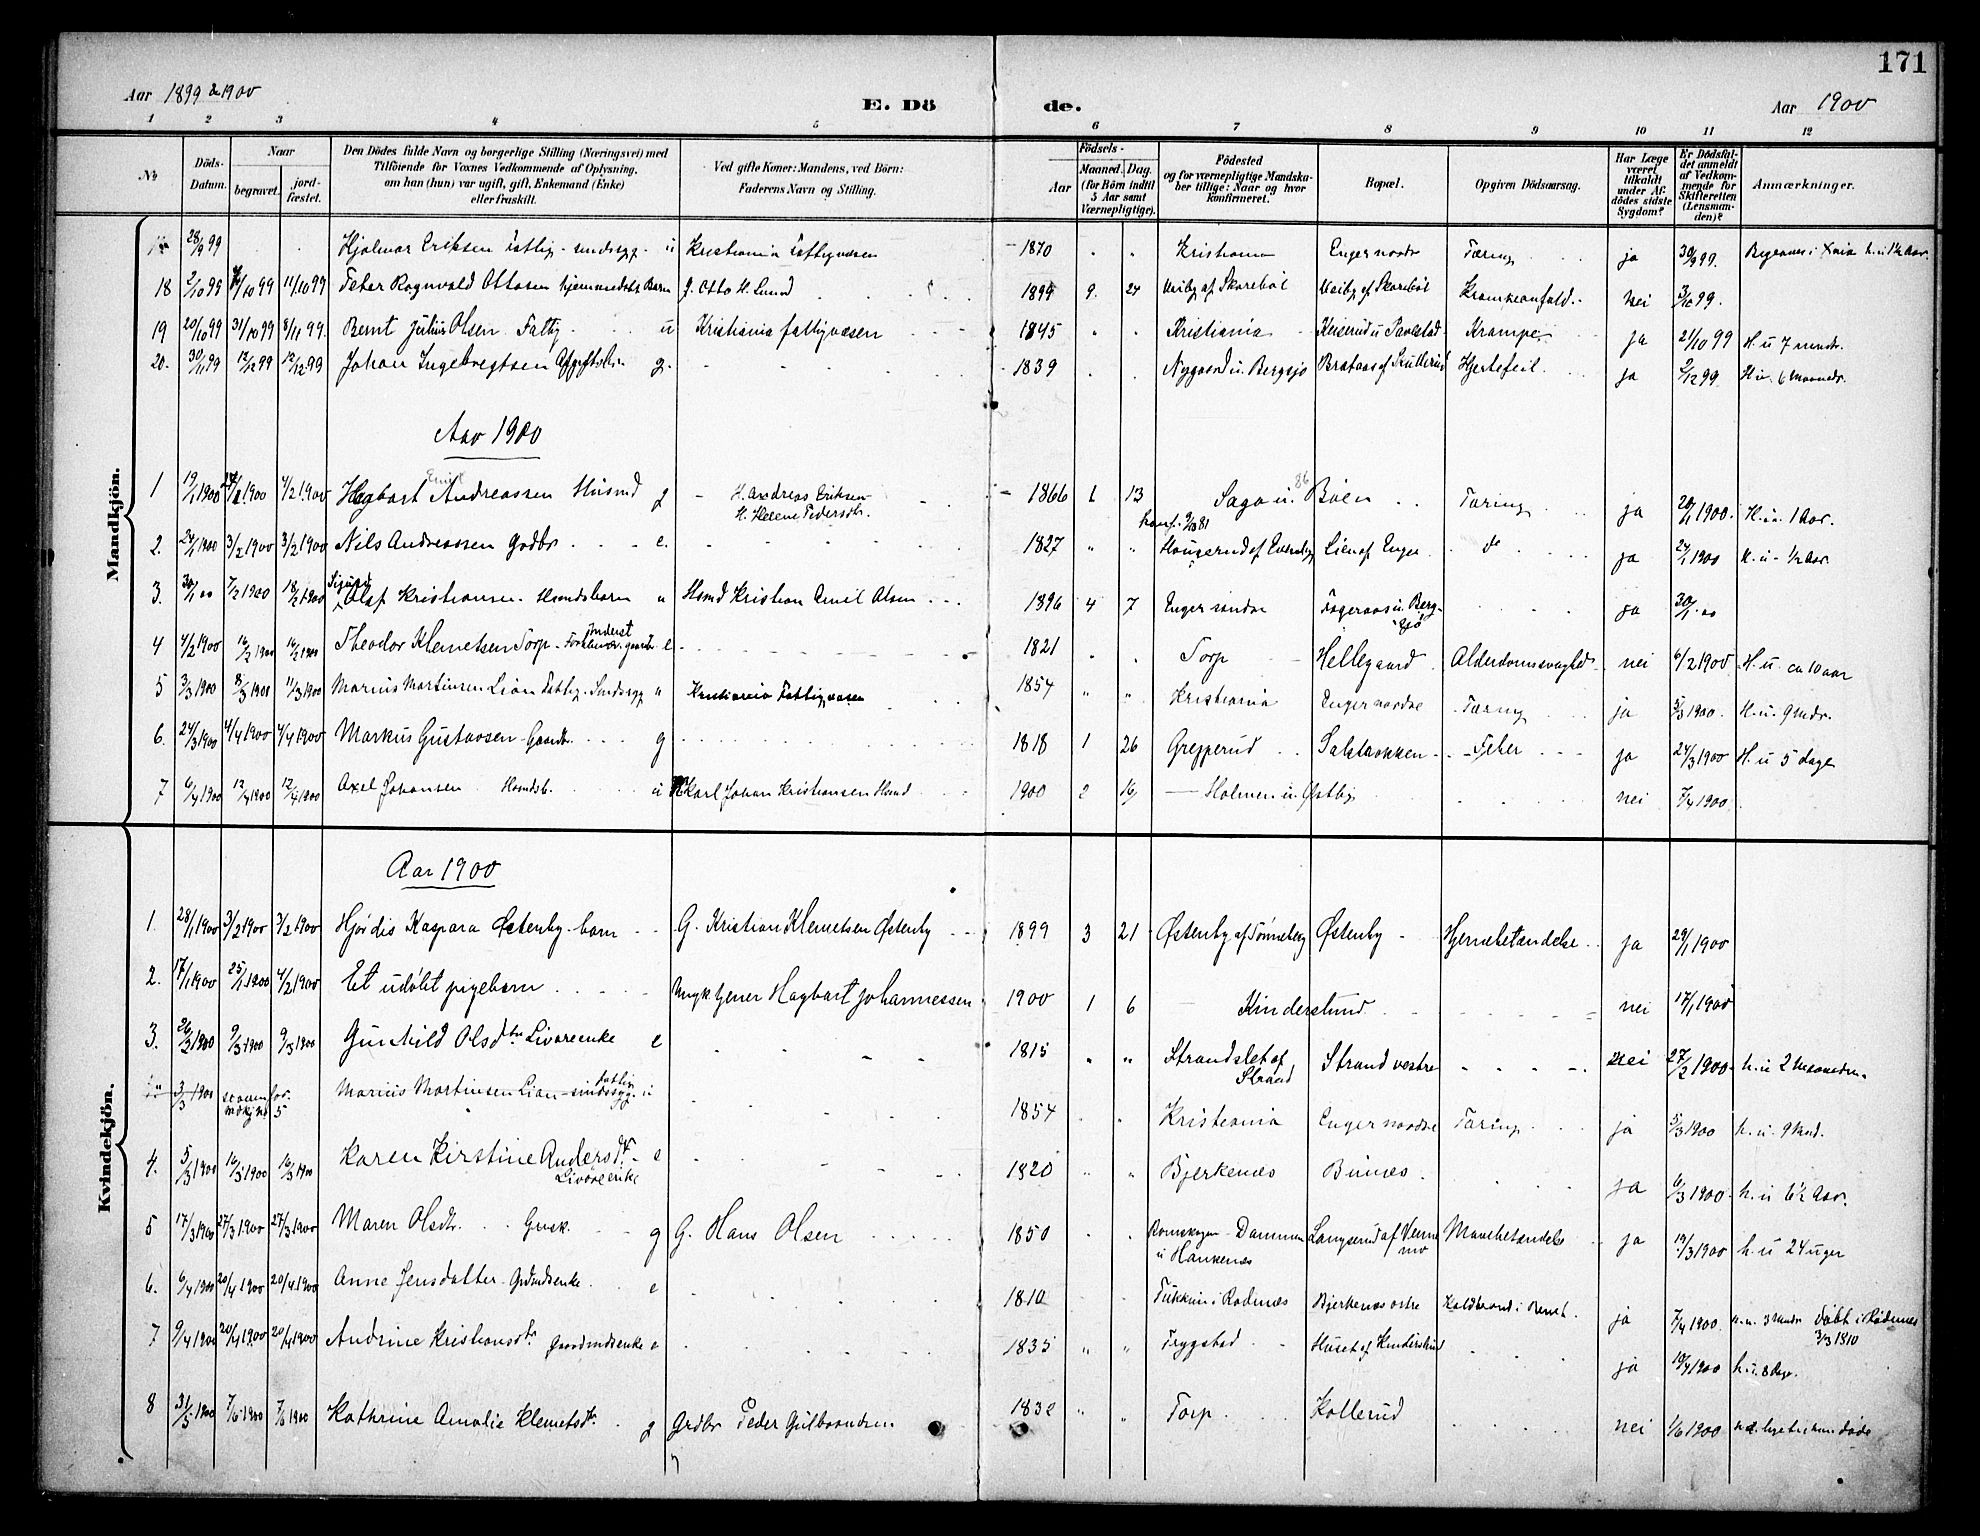 171
Aar 1899 & 1900 E. Dö de. Aar 1900
1 2 3 4 5 6 7 8 9 10 11 12
No. Döds-Datum. Naar begravet. jord-fæstet. Den Dödes fulde Navn og borgerlige Stilling (Næringsvei) med Tilföiende for Voxnes Vedkommende af Oplysning, om han (hun) var ugift, gift, Enkemand (Enke) eller fraskilt. Ved gifte Koner: Mandens, ved Börn: Faderens Navn og Stilling. Födsels- Aar Maaned. Dag. (for Börn indtil 5 Aar samt Værnepligtige). Födested og for værnepligtige Mandskaber tillige: Naar og hvor konfirmeret. Bopæl. Opgiven Dödsaarsag. Har Læge været tilkaldt under Afdödes sidste Sygdom? Er Dödsfaldet anmeldt af Vedkommende for Skifteretten (Lensmanden)? Anmærkninger.
Mandkjön.
28/9 99 Hjalmar Eriksen Fattig - sindssyg - u Kristiania Fattigvæsen 1870 " " Kristiania Enger nordre Tæring ja 30/9 99.
18 2/10 99 11/10 99 Peter Ragnvald Ottosen hjemmedøbt Barn g. Otto H. Lund 1899 9. 24 Visby af Skarebøl Visby af Skarebøl Krampeanfald. nei 3/10 99.
19 20/10 99 31/10 99 8/11 99. Bernt Julius Olsen Fattig u Kristiania fattigvæsen 1845 " " Kristiania Keiserud u Pavelstad Krampe ja 21/10 99 H. u 7 mndr.
20. 30/11 99 12/12 99 12/12 99 Johan Ingebregtsen g. 1839 Nygaard u. Bergsjø Brataas af Skullerud Hjertefeil. ja 2/12 99. H u. 6 Maaneder.
Aar 1900
1 19/1 1900 4/2 1900 Hagbart Andreassen Husmd g H. Andreas Eriksen
H. Helene Pedersdtr. 1866 1 13 Saga u. Bøen Tæring ja 20/1 1900. H. u. 1 Aar.
konf. 9/10 81
2. 24/1 1900 3/2 1900 3/2 1900 Nils Andreassen Grdbr e. 1827 " " Haugerud af Lien af Enger do ja 24/1 1900 H. u - 1/2 Aar.
3. 30/1 00 7/2 1900 18/2 1900 Sigurd Olaf Kristiansen - Husmdsbarn u Husmd Kristian Emil Olsen 1896 4 7 Enger søndre Fageraas u. Bergsjø ja 30/1 00
4 4/2 1900 16/2 1900 16/2 1900 Theodor Klemetsen Torp - e 1821 " " Torp Hellegaard Alderdomssvaghed nei 6/2 1900 H. u. ca 10 aar
5 3/3 1900 8/3 1900 11/3 1900 Marius Martinsen Lian Fattig - Sindssyg u Kristiania Fattigvæsen 1854 " " Kristiania Enger nordre Tæring ja 5/3 1900. H. u. 9 Mndr.
6. 24/3 1900 4/4 1900 4/4 1900 Markus Gustavsen - Gaardbr. g 1818 1 26 Grepperud Salsbakken Feber ja 24/3 1900 H. u 5 dage
7 6/4 1900 12/4 1900 12/4 1900 Axel Johansen Husmdsb. u Karl Johan Kristiansen Husmd 1900 2 16 Holmen u. Østby nei 7/4 1900.
Kvindekjön.
Aar 1900
1. 28/1 1900 3/2 1900 3/2 1900 Hjørdis Kaspara Østenby - barn G. Kristian Klemetsen Østenby 1899 3 21 Østenby af Tønneberg Østenby Hjernebetændelse ja 29/1 1900
2. 17/1 1900 25/1 1900 4/2 1900 Et udøbt pigebarn Hagbart Johannessen 1900 1 6 Kinderslund nei 17/1 1900
3. 26/2 1900 9/3 1900 9/3 1900 Gunhild Olsdtr Livøreenke e 1815 " " Strandslet af Strand Strand vestre nei 27/2 1900. h. u 2 Maaneder.
3/3 1900 Marius Martinsen Lian - fattig sindssyg. u 1854 " " Kristiania Enger nordre Tæring ja 5/3 1900 h. u. 9 Mnd.
4. 5/3 1900 16/3 1900 16/3 1900 Karen Kirstine Andersdtr. e
Livøreenke 1820 " " Bjerkenæs Bunæs. ja 6/3 1900. h. u 6 1/2 Aar.
5 17/3 1900 27/3 1900 27/3 1900 Maren Olsdtr. g G. Hans Olsen 1850 " " Rømskogen - Dammen u Haukenæs Langserud af Mavebetændelse ja 19/3 1900 h. u 24 uger
6. 6/4 1900 20/4 1900 20/4 1900 Anne Jensdatter - Grdmdsenke e 1810 i Rødenæs Bjerkenæs østre Koldbrand i Benet. ja 7/4 1900. h. u. 3 Mndr Døbt i Rødenæs 3/3 1810
7 9/4 1900 20/4 1900 20/4 1900 Andrine Kristiansdtr Gaardmdsenke e 1835 " " Trygstad Huset af Kinderslund ja 10/4 1900 h. u. 8 dage.
8 31/5 1900 7/6 1900 7/6 1900 Kathrine Amalie Klemetsdtr. g Grdbr Peder Gulbrandsen 1832 " " Torp Kollerud nei 1/6 1900